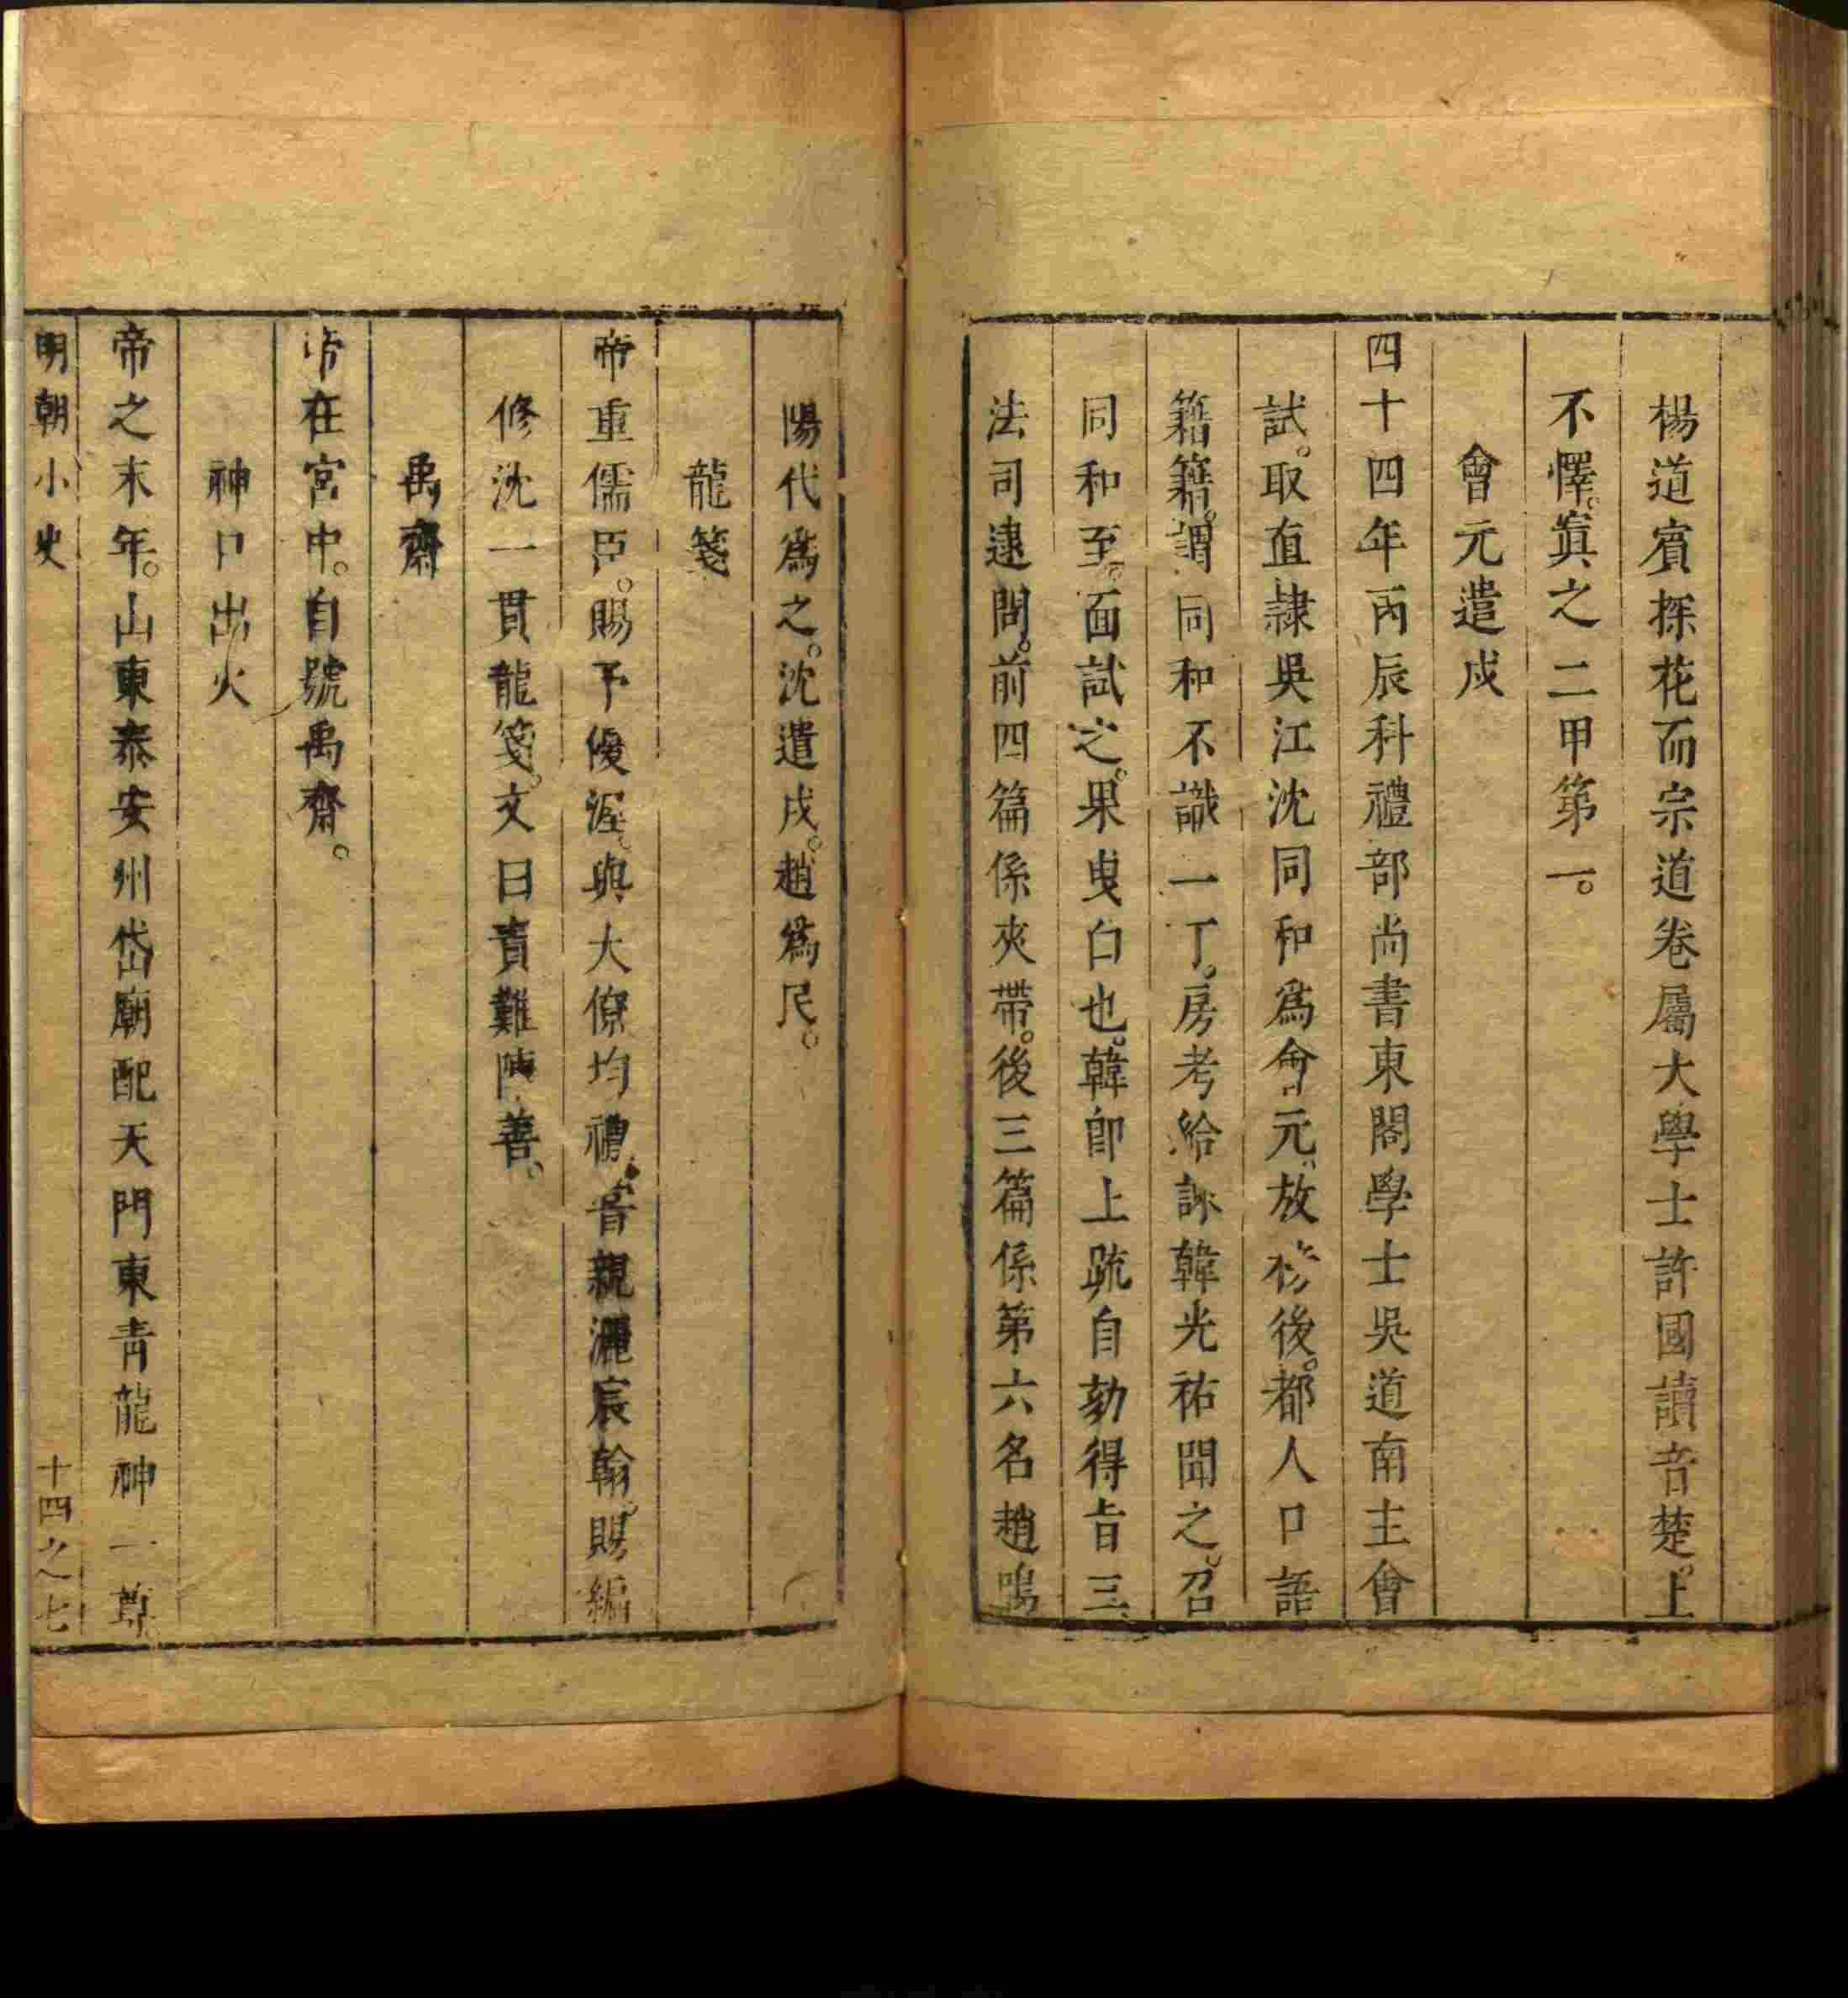 楊道賓探花而宗道卷屬大學士許國讀音楚。上
不懌。寘之二甲第一。
會元遣戍
四十四年丙辰科禮部尚書東閣學士吳道南主會
試。取直隸吳江沈同和爲會元。放榜後。都人口語
籍籍。謂同和不識一丁。房考給諫韓光祐聞之。召
同和至。面試之。果曳白也。韓卽上疏自劾得旨三
法司逮問。前四篇係夾帶。後三篇係第六名趙鳴
陽代爲之。沈遣戍。趙爲民。
龍箋
帝重儒臣。賜予優渥。與大僚均禮。嘗親灑宸翰。賜編
修沈一貫龍箋。文曰責難陳善。
禹齋
帝在宮中。自號禹齋。
神口出火
帝之末年。山東泰安州岱廟配天門東靑龍神一尊
明朝小史
十四之七